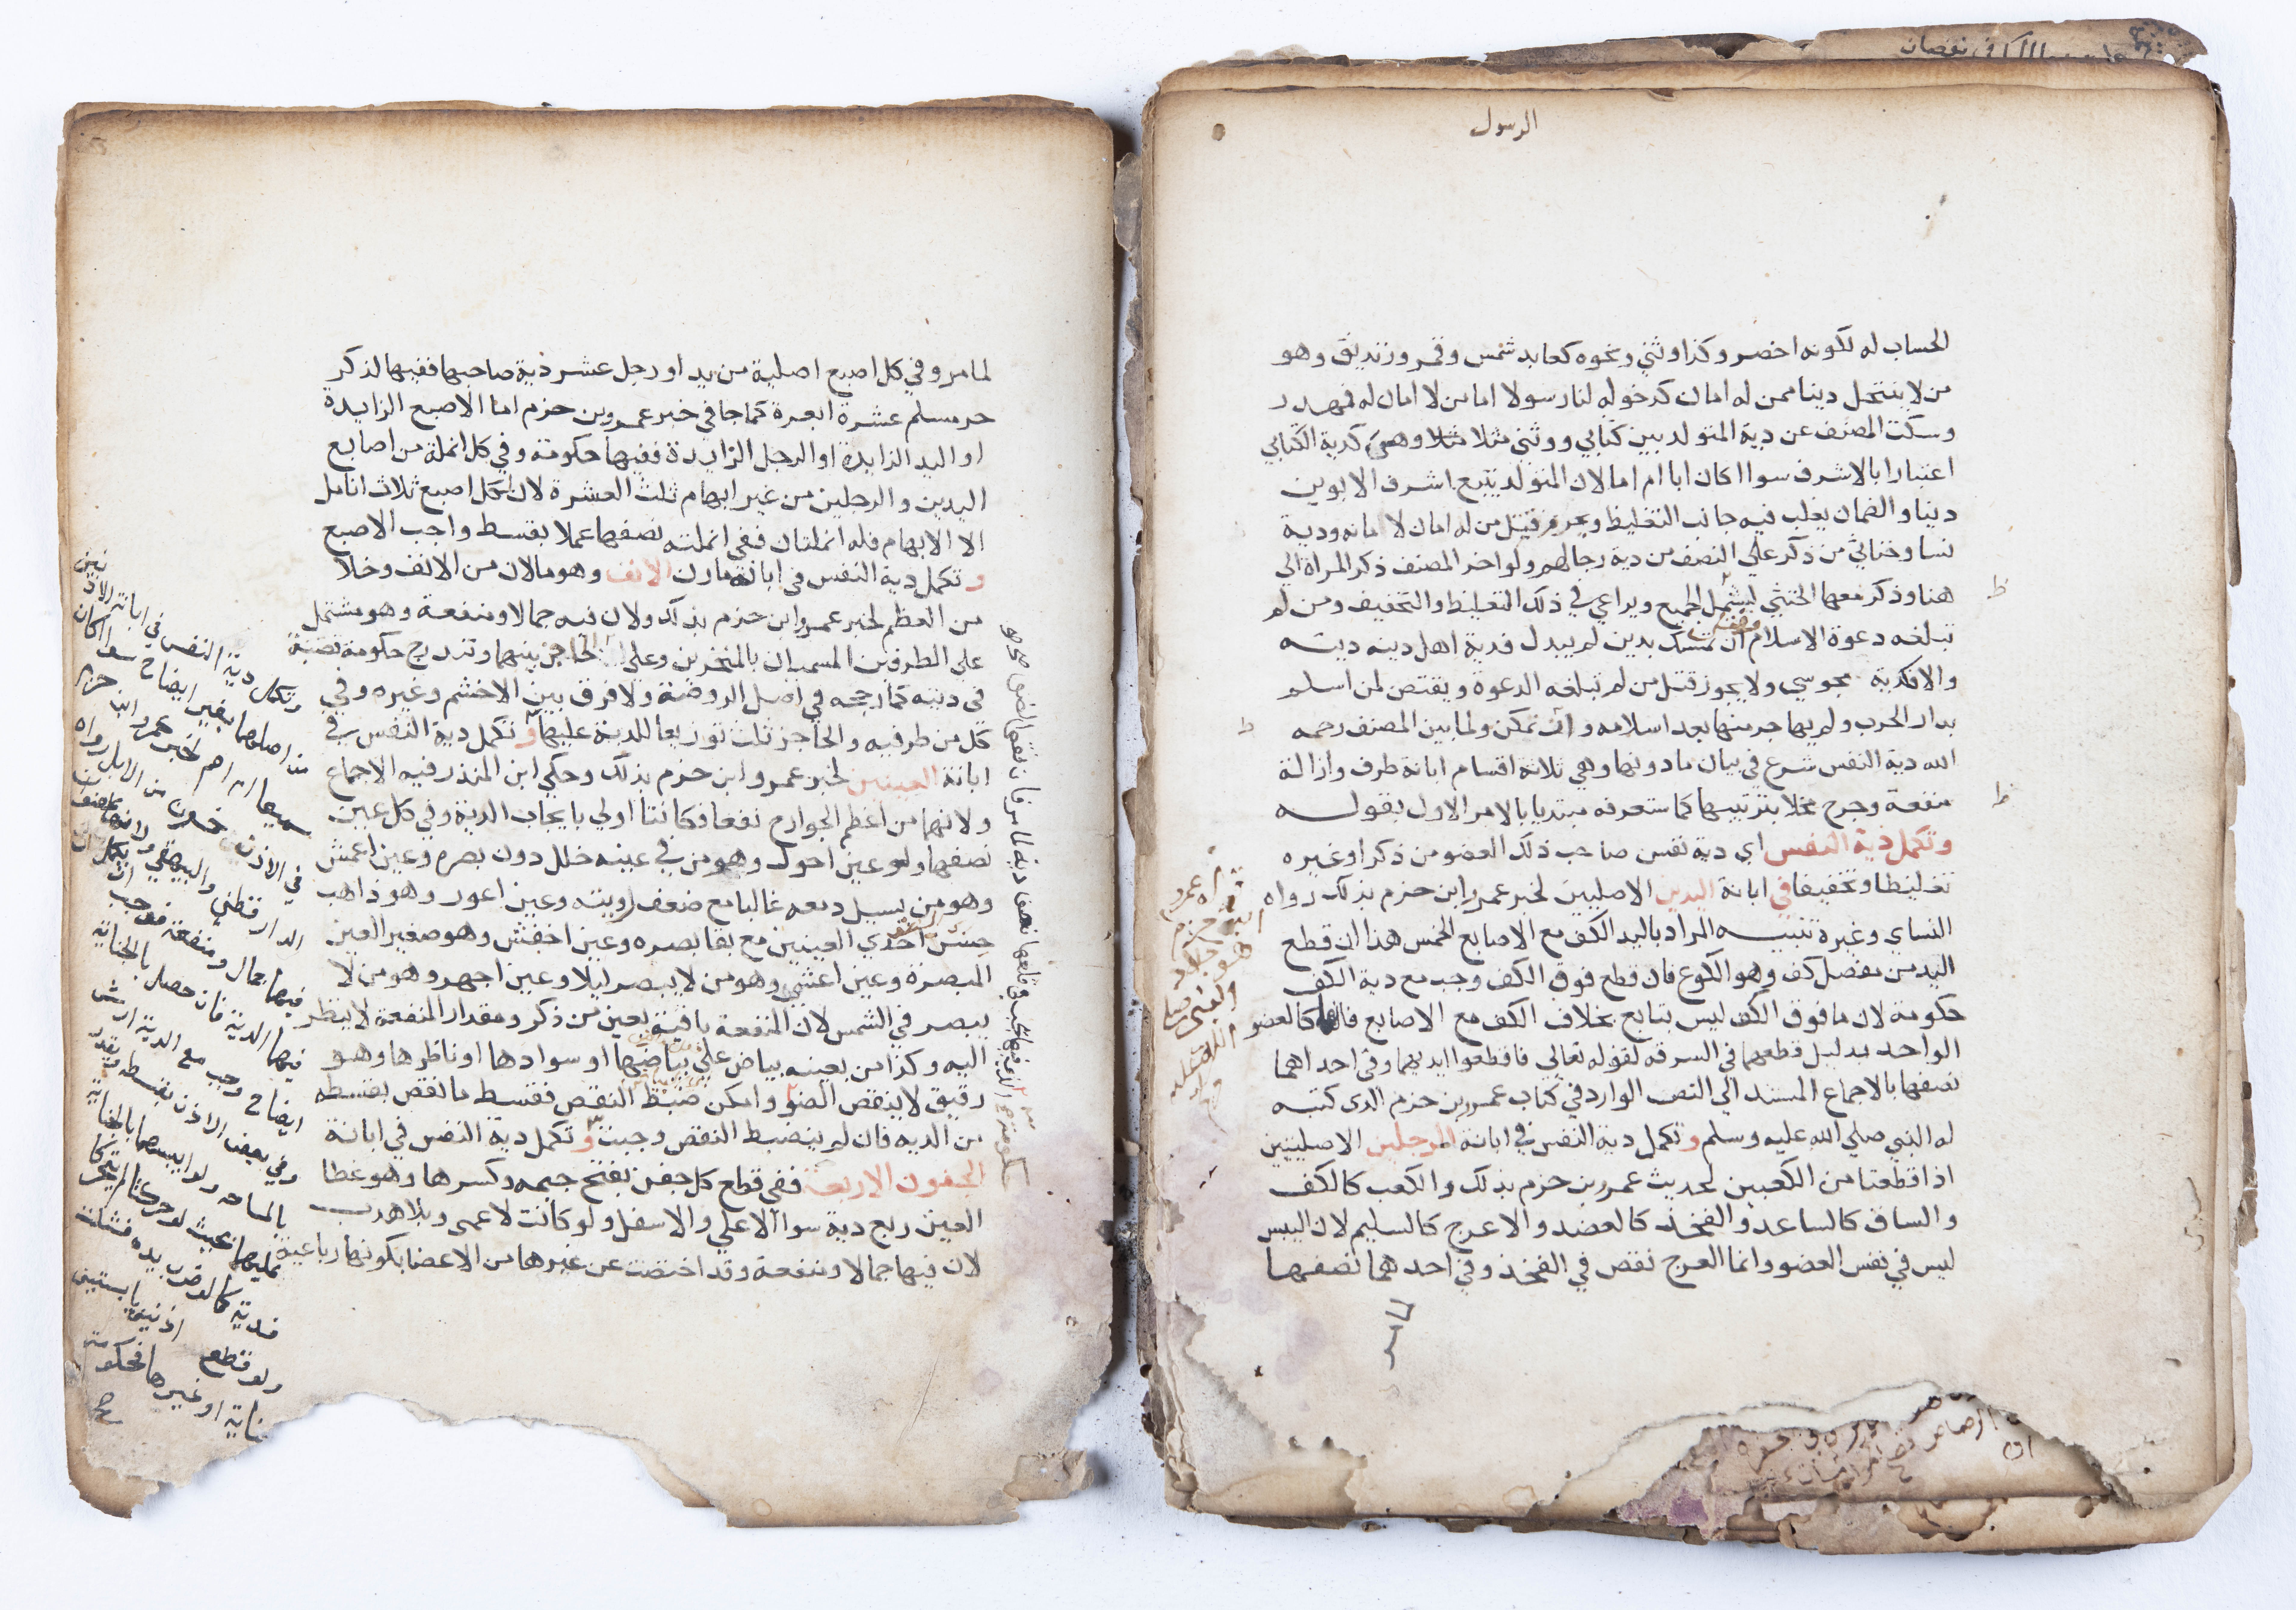 الرسول
الحساب له لكونه اخضر وكذا وثني ونحوه كعابد شمس وقمر وزنديق وهو
من لا ينتحل دينا ممن له امان كدخوله لنا رسولا اما من لا امان له فمهدر
وسكت المصنف عن دية المتولد بين كتابي ووثني مثلا وهي كدية الكتابي
اعتبارا بالاشرف سوا اكان ابا ام اما لان المتولد يتبع اشرف الابوين
دينا والضمان يغلب فيه جانب التغليظ ويحرم قتل من له امان لامانه ودية
نسا وخناثي من ذكر علي النصف من دية رجالهم ولو اخر المصنف ذكر المراة الي
هنا وذكر معها الخنثي ليشمل الجميع ويراعي في ذلك التغليظ والتخفيف ومن لم
تبلغه دعوة الاسلام ان تمسك بدين لم يبدل فدية اهل دينه ديته
والا فكدية مجوسي ولا يجوز قتل من لم تبلغه الدعوة ويقتص لمن اسلم
بدار الحرب ولم يهاجر منها بعد اسلامه وان تمكن ولما بين المصنف رحمه
الله دية النفس شرع في بيان ما دونها وهي ثلاثة اقسام ابانة طرف وازالة
منفعة وجرح مخلا بترتيبها كما ستعرفه مبتديا بالامر الاول بقوله
وتكمل دية النفس اي دية نفس صاحب ذلك العضو من ذكر او غيره
تغليظا وتخفيفا في ابانة اليدين الاصليين لخبر عمرو ابن حزم بذلك رواه
النساي وغيره تنبيه المراد باليد الكف مع الاصابع الخمس هذا ان قطع
اليد من مفصل كف وهو الكوع فان قطع فوق الكف وجب مع دية الكف
حكومة لان ما فوق الكف ليس بتابع بخلاف الكف مع الاصابع فانها كالعضو
الواحد بدليل قطعهما في السرقه لقوله تعالي فاقطعوا ايديهما وفي احداهما
نصفها بالاجماع المستند الي النص الوارد في كتاب عمرو بن حزم الذي كتبه
له النبي صلي الله عليه وسلم وتكمل دية النفس في ابانة الرجلين الاصليتين
اذا قطعتا من الكعبين لحديث عمرو بن حزم بذلك والكعب كالكف
والساق كالساعد والفخذ كالعضد والاعرج كالسليم لان العيب
ليس في نفس العضو وانما العرج نقص في الفخذ وفي احدهما نصفها
لما مر وفي كل اصبع اصلية من يد او رجل عشر دية صاحبها ففيها لذكر
حر مسلم عشرة ابعرة كما جا في خبر عمرو بن حزم اما الاصبع الزايدة
او اليد الزايدة او الرجل الزايدة ففيها حكومة وفي كل انملة من اصابع
اليدين والرجلين من غير ابهام ثلث العشرة لان لكل اصبع ثلاث انامل
الا الابهام فله انملتان ففي انملته نصفها عملا بقسط واجب الاصبع
وتكمل دية النفس في ابانة مارن الانف وهو مالان من الانف وخلا
من العظم لخبر عمرو ابن حزم بذلك ولان فيه جمالا ومنفعة وهو مشتمل
علي الطرفين المسميان بالمنخرين وعلي الحاجز بينهما وتندرج حكومة قصبة
في ديته كما رجحه في اصل الروضة ولا فرق بين الاخشم وغيره وفي
كل من طرفيه والحاجز ثلث توزيعا للدية عليها وتكمل دية النفس في
ابانة العينين لخبر عمرو ابن حزم بذلك وحكي ابن المنذر فيه الاجماع
ولانهما من اعظم الجوارح نفعا فكانتا اولي بايجاب الدية وفي كل عين
نصفها ولو عين احول وهو من في عينه خلل دون بصره وعين اعمش
وهو من يسيل دمعه غالبا مع ضعف رويته وعين اعور وهو ذاهب
حس احدي العينين مع بقا بصره وعين اخفش وهو صغير العين
المبصرة وعين اعشي وهو من لا يبصر ليلا وعين اجهر وهو من لا
يبصر في الشمس لان المنفعة باقية بعين من ذكر ومقدار المنفعة لا ينظر
اليه وكذا من بعينه بياض علي بياضها او سوادها او ناظرها وهو
رقيق لا ينقص الضو وامكن ضبط النقص فقسط ما نقص بقسطه
من الديه فان لم ينضبط النقص وجبت وتكمل دية النفس في ابانة
الجفون الاربعة ففي قطع كل جفن بفتح جيمه وكسرها وهو غطا
العين ربع دية سوا الاعلي والاسفل ولو كانت لاعمي وبلا هدب
لان فيها جمالا ومنفعة وقد اختصت عن غيرها من الاعضا بكونها رباعية
وتكمل دية النفس في ابانة الاذنين
من اصلهما بغير ايضاح سوا اكان
سميعا ام اصم لخبر عمرو ابن حزم
في الاذن خمسون من الابل رواه
الدارقطني والبيهقي
فيها جمال ومنفعة فوجب
فيها الدية فان حصل بالجناية
ايضاح وجب مع الدية ارش
وفي بعض الاذن بقسطه
بالمساحه ولو ايبسهما بالجناية
عليهما بحيث لو حركتا لم يتحركا
فدية كما لو ضرب يده فشلت
ولو قطع اذنين يابستين
بجناية او غيرها فحكومة